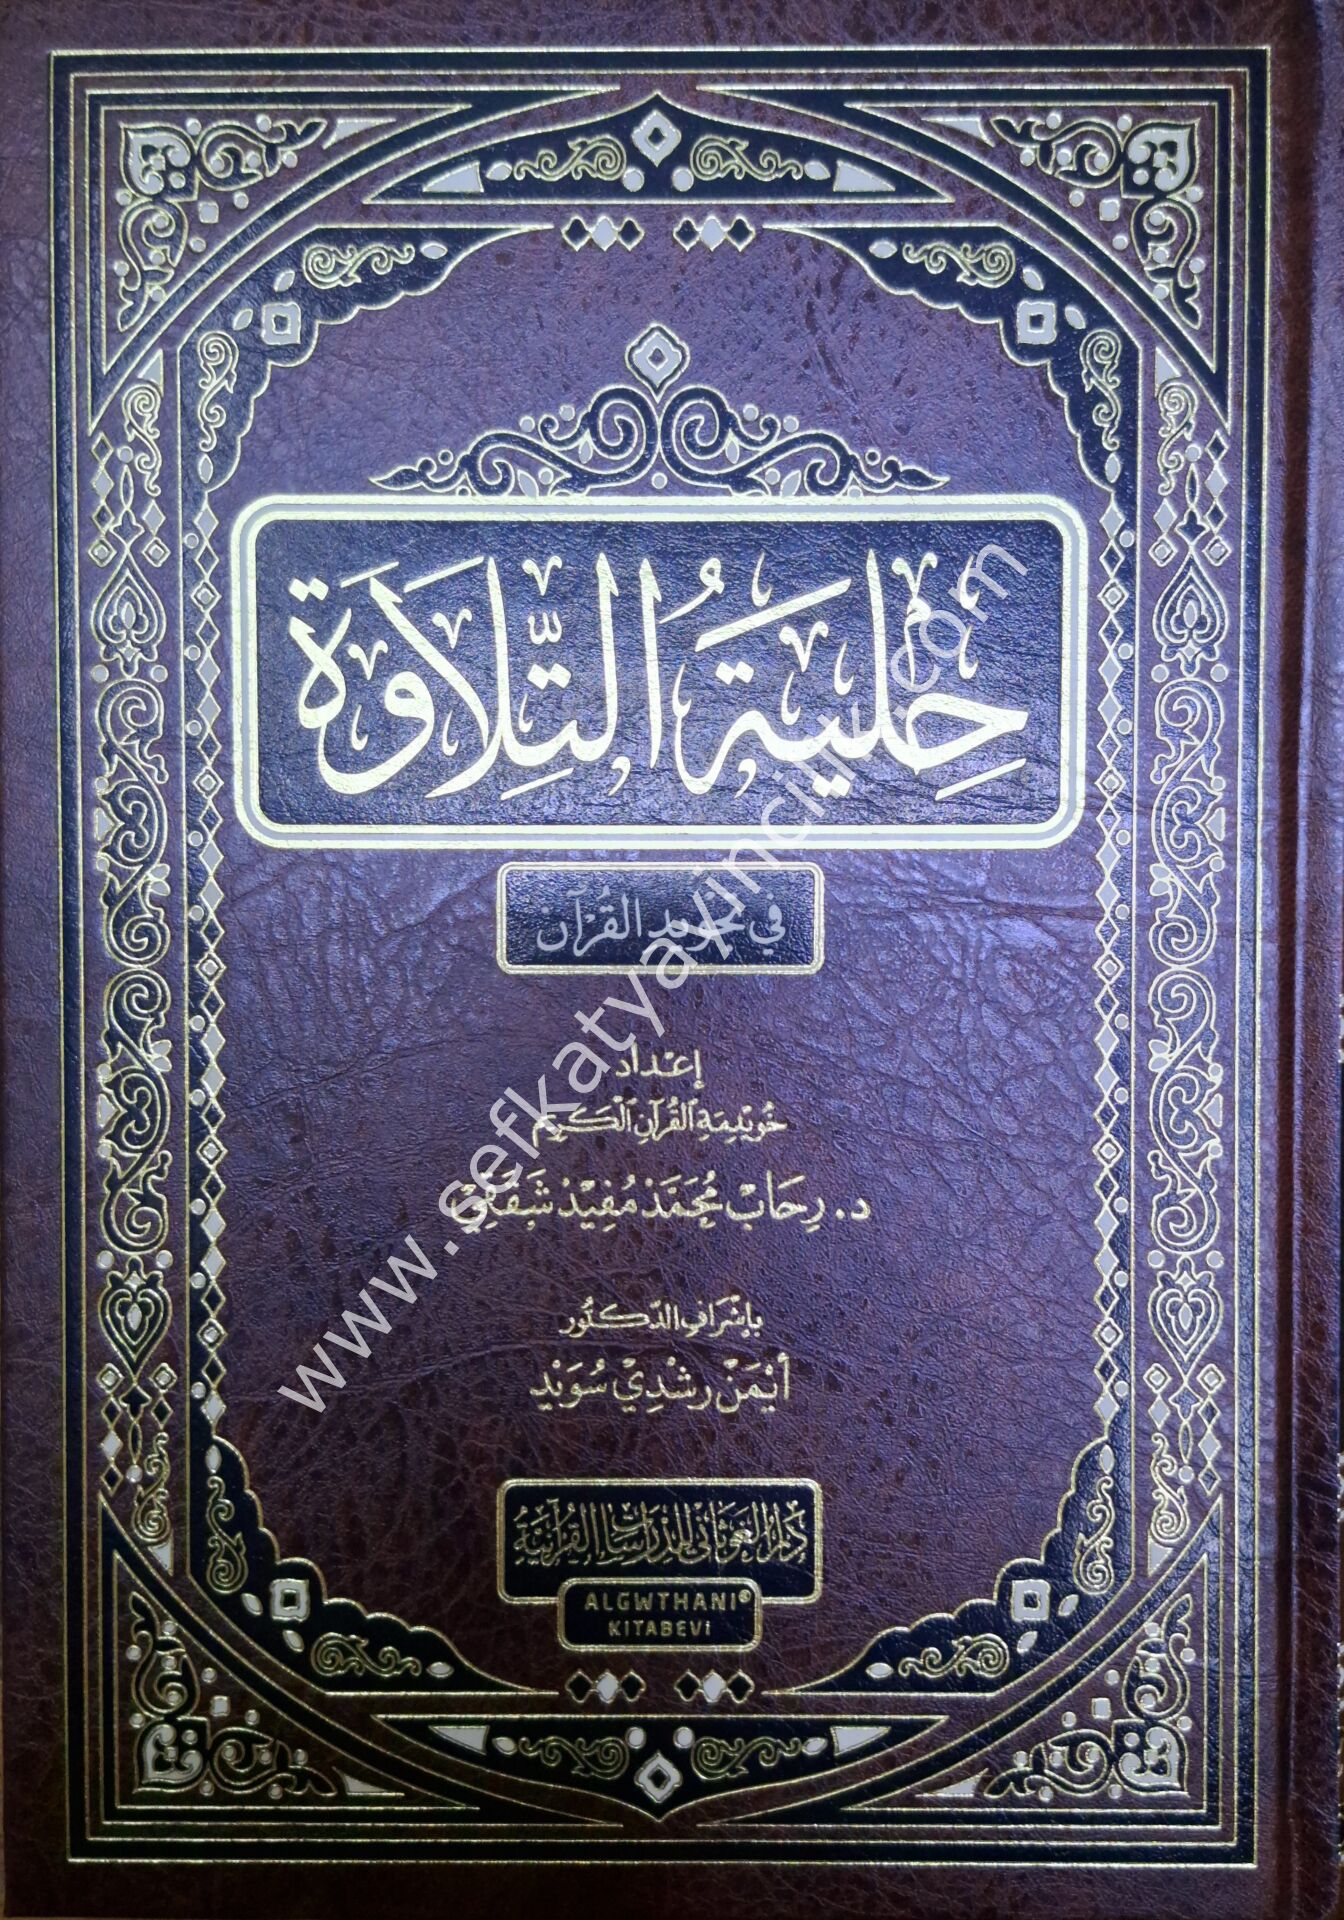 حِلْيَةُ التِّلَاوَةِ
في تجويد القُرْآن
إعْدَاد
خُوَيْدِمَةِ القُرْآنِ الْكَرِيمِ
د. رِحَابْ مُحَمَّدْ مُفِيدْ شَقَقِي
بِإِشْرَافِ الدّكتُور
أَيْمَنْ رُشْدِيْ سُوَيْدْ
دَارُ الغَوْثَانِي لِلدِّرَاسَاتِ القُرْآنِيَّةِ
ALGWTHANI®
KITABEVİ
www.sefkatyayincilik.com